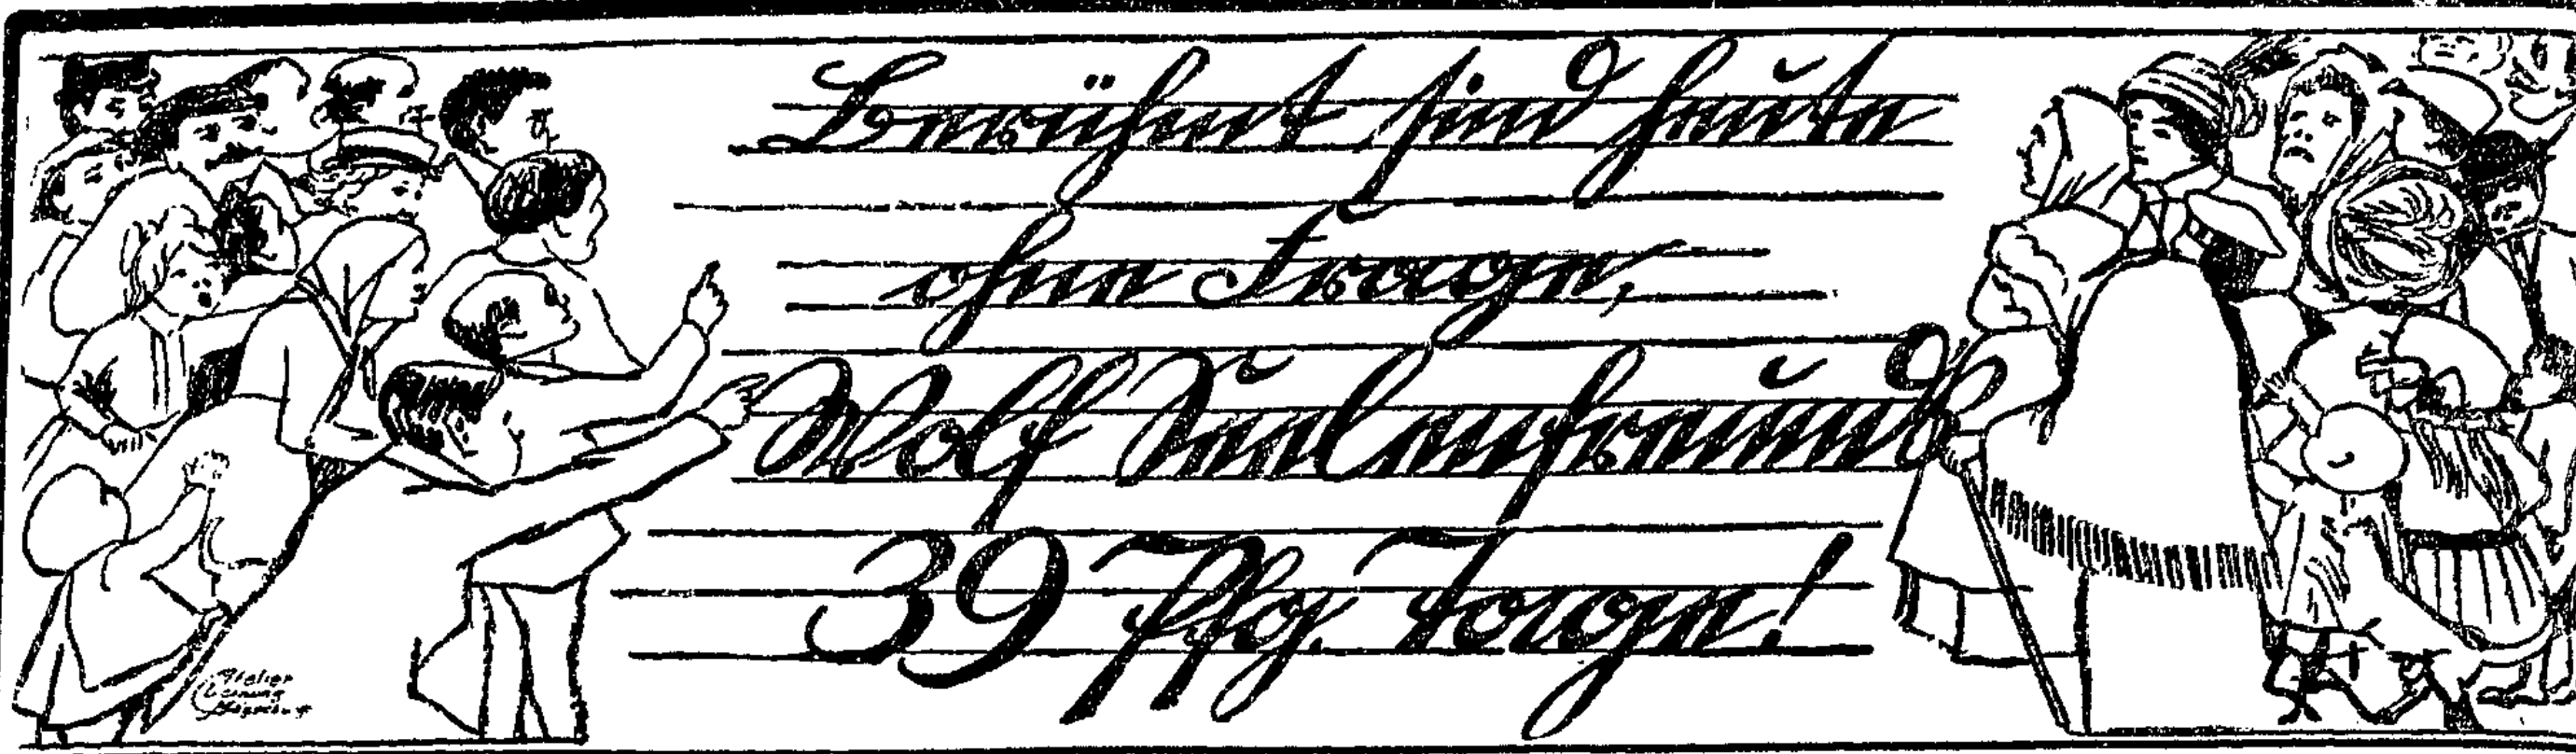 Berühmt sind heute
ohne Frage,
Wolf
39 Pfg. Tage!
Atelier